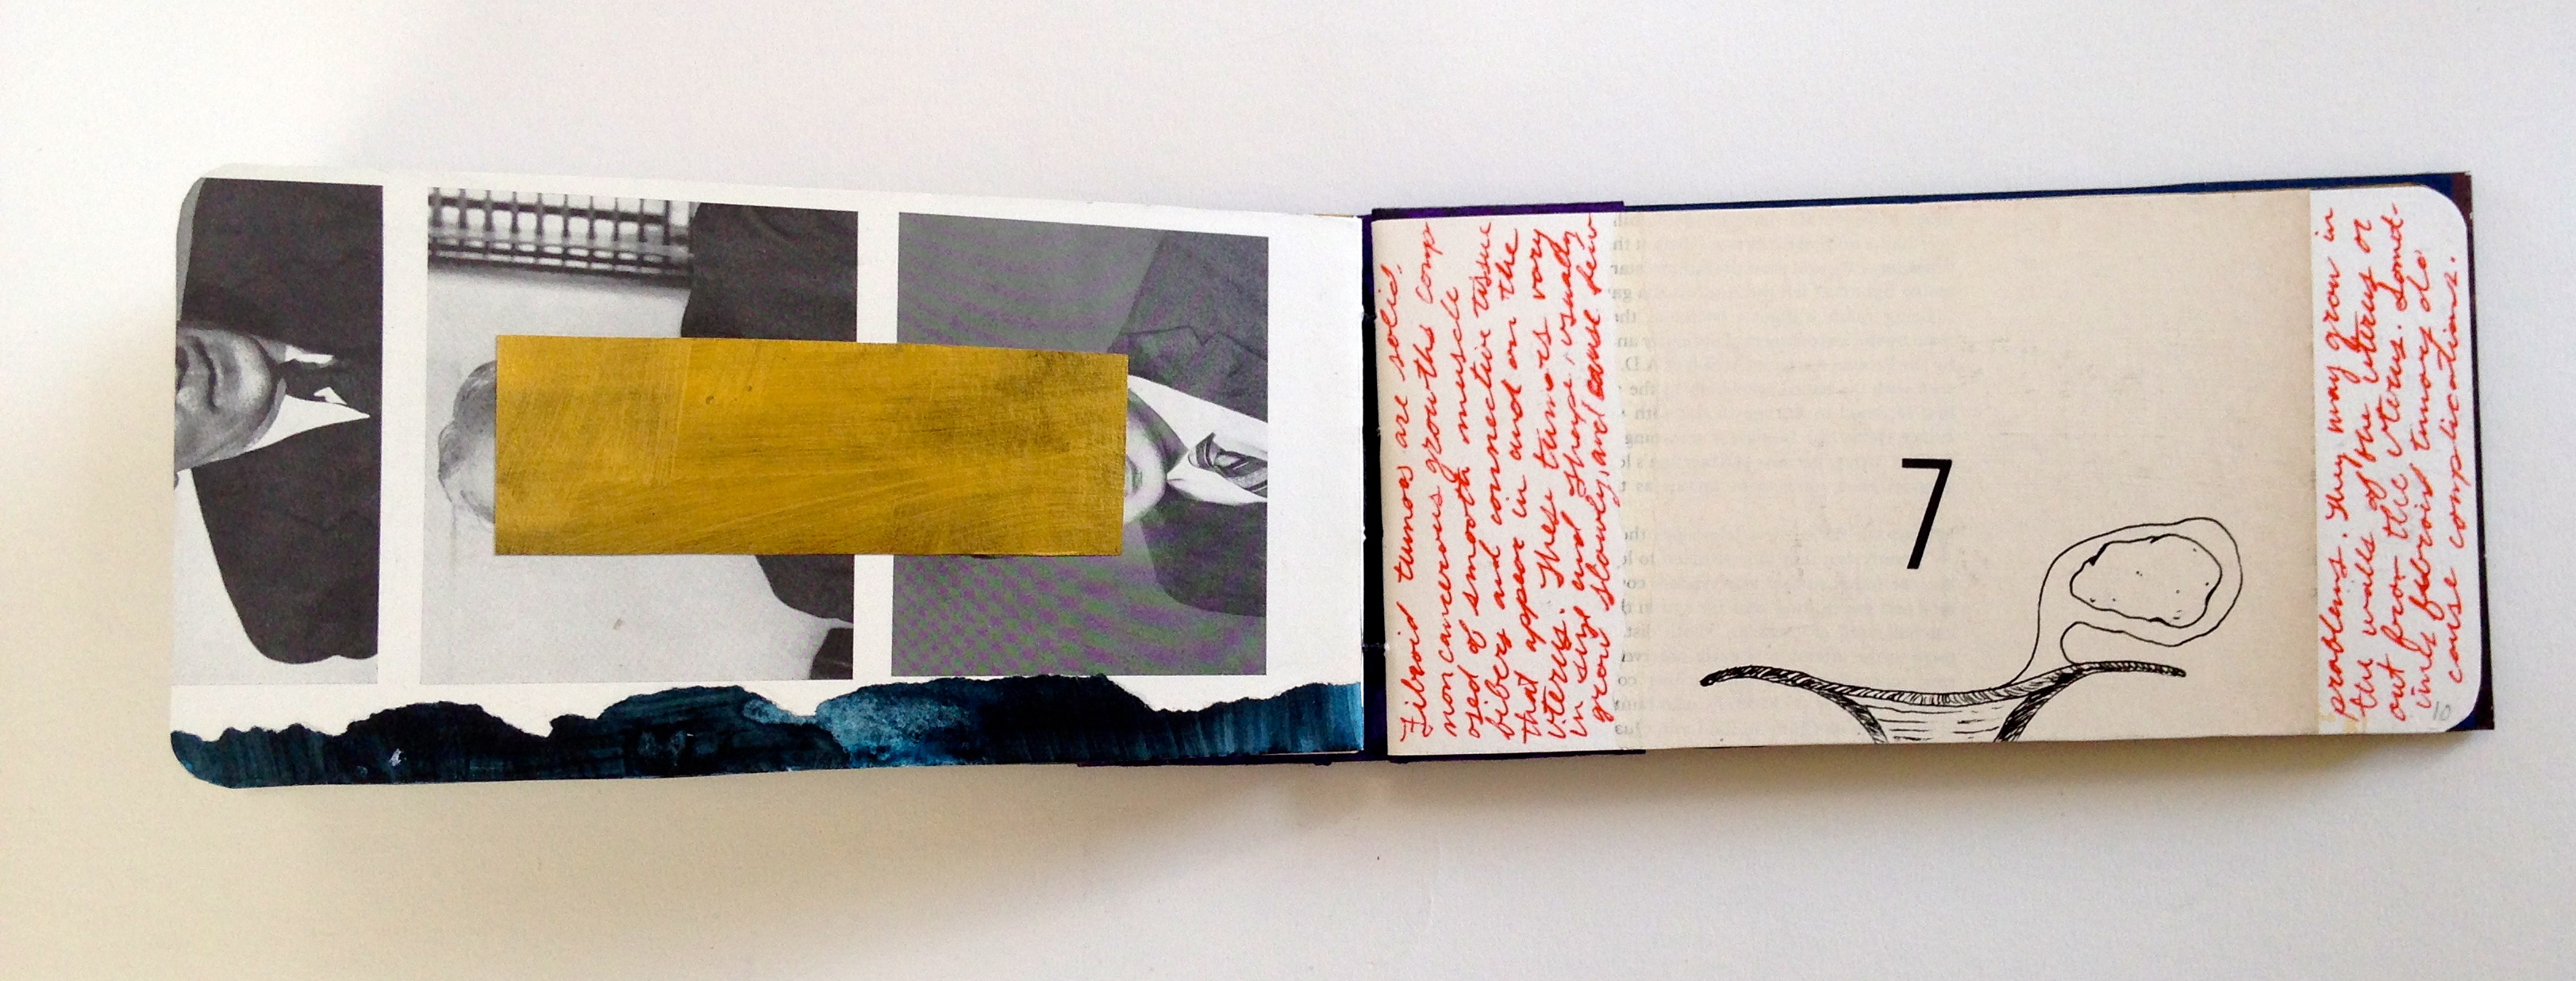 Fibroid tumors are solid,
non cancerous growths comp
osed of smooth muscle
fibers and connective tissue
that appear in and on the
uterus. These tumors vary
in size and shape, usually
grow slowly, and cause few
7
problems. They may grow in
the walls of the uterus or
out from the uterus. Somet-
imes fibroid tumors do
cause complications.
10